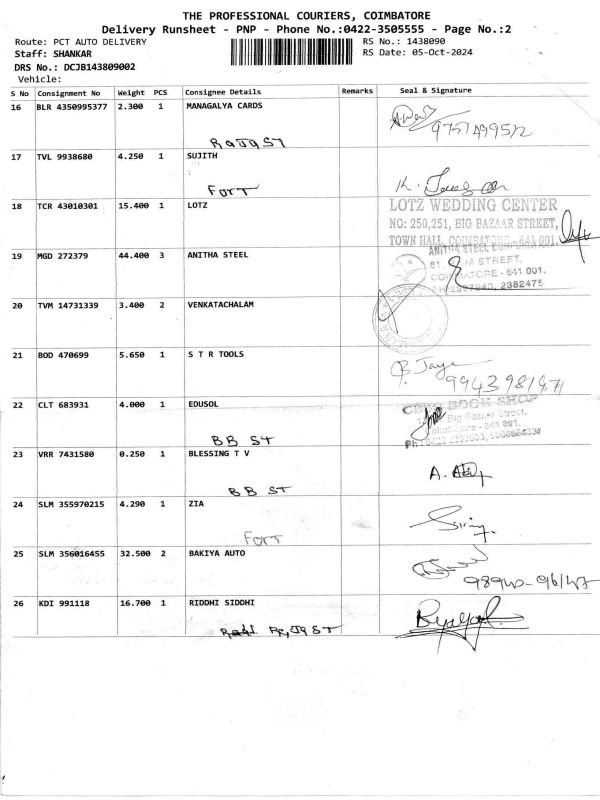 THE PROFESSIONAL COURIERS, COIMBATORE
Delivery Runsheet - PNP - Phone No.:0422-3505555 - Page No.:2
Route: PCT AUTO DELIVERY RS No.: 1438090
Staff: SHANKAR RS Date: 05-Oct-2024
DRS No.: DCJB143809002
Vehicle:
S No Consignment No Weight PCS Consignee Details Remarks Seal & Signature
16 BLR 4350995377 2.300 1 MANAGALYA CARDS
RAJA ST
17 TVL 9938680 4.250 1 SUJITH
FORT
18 TCR 43010301 15.400 1 LOTZ
LOTZ WEDDING CENTER
NO: 250,251, BIG BAZAAR STREET,
TOWN HALL, COIMBATORE - 641 001.
19 MGD 272379 44.400 3 ANITHA STEEL
ANITHA STEEL
STREET,
COIMBATORE - 641 001.
2382475
20 TVM 14731339 3.400 2 VENKATACHALAM
21 BOD 470699 5.650 1 S T R TOOLS
22 CLT 683931 4.000 1 EDUSOL
BOOK SHOP
Big Bazaar Street,
Coimbatore - 641 001.
BB ST
23 VRR 7431580 0.250 1 BLESSING T V
BB ST
24 SLM 355970215 4.290 1 ZIA
FORT
25 SLM 356016455 32.500 2 BAKIYA AUTO
26 KDI 991118 16.700 1 RIDDHI SIDDHI
RAJA ST